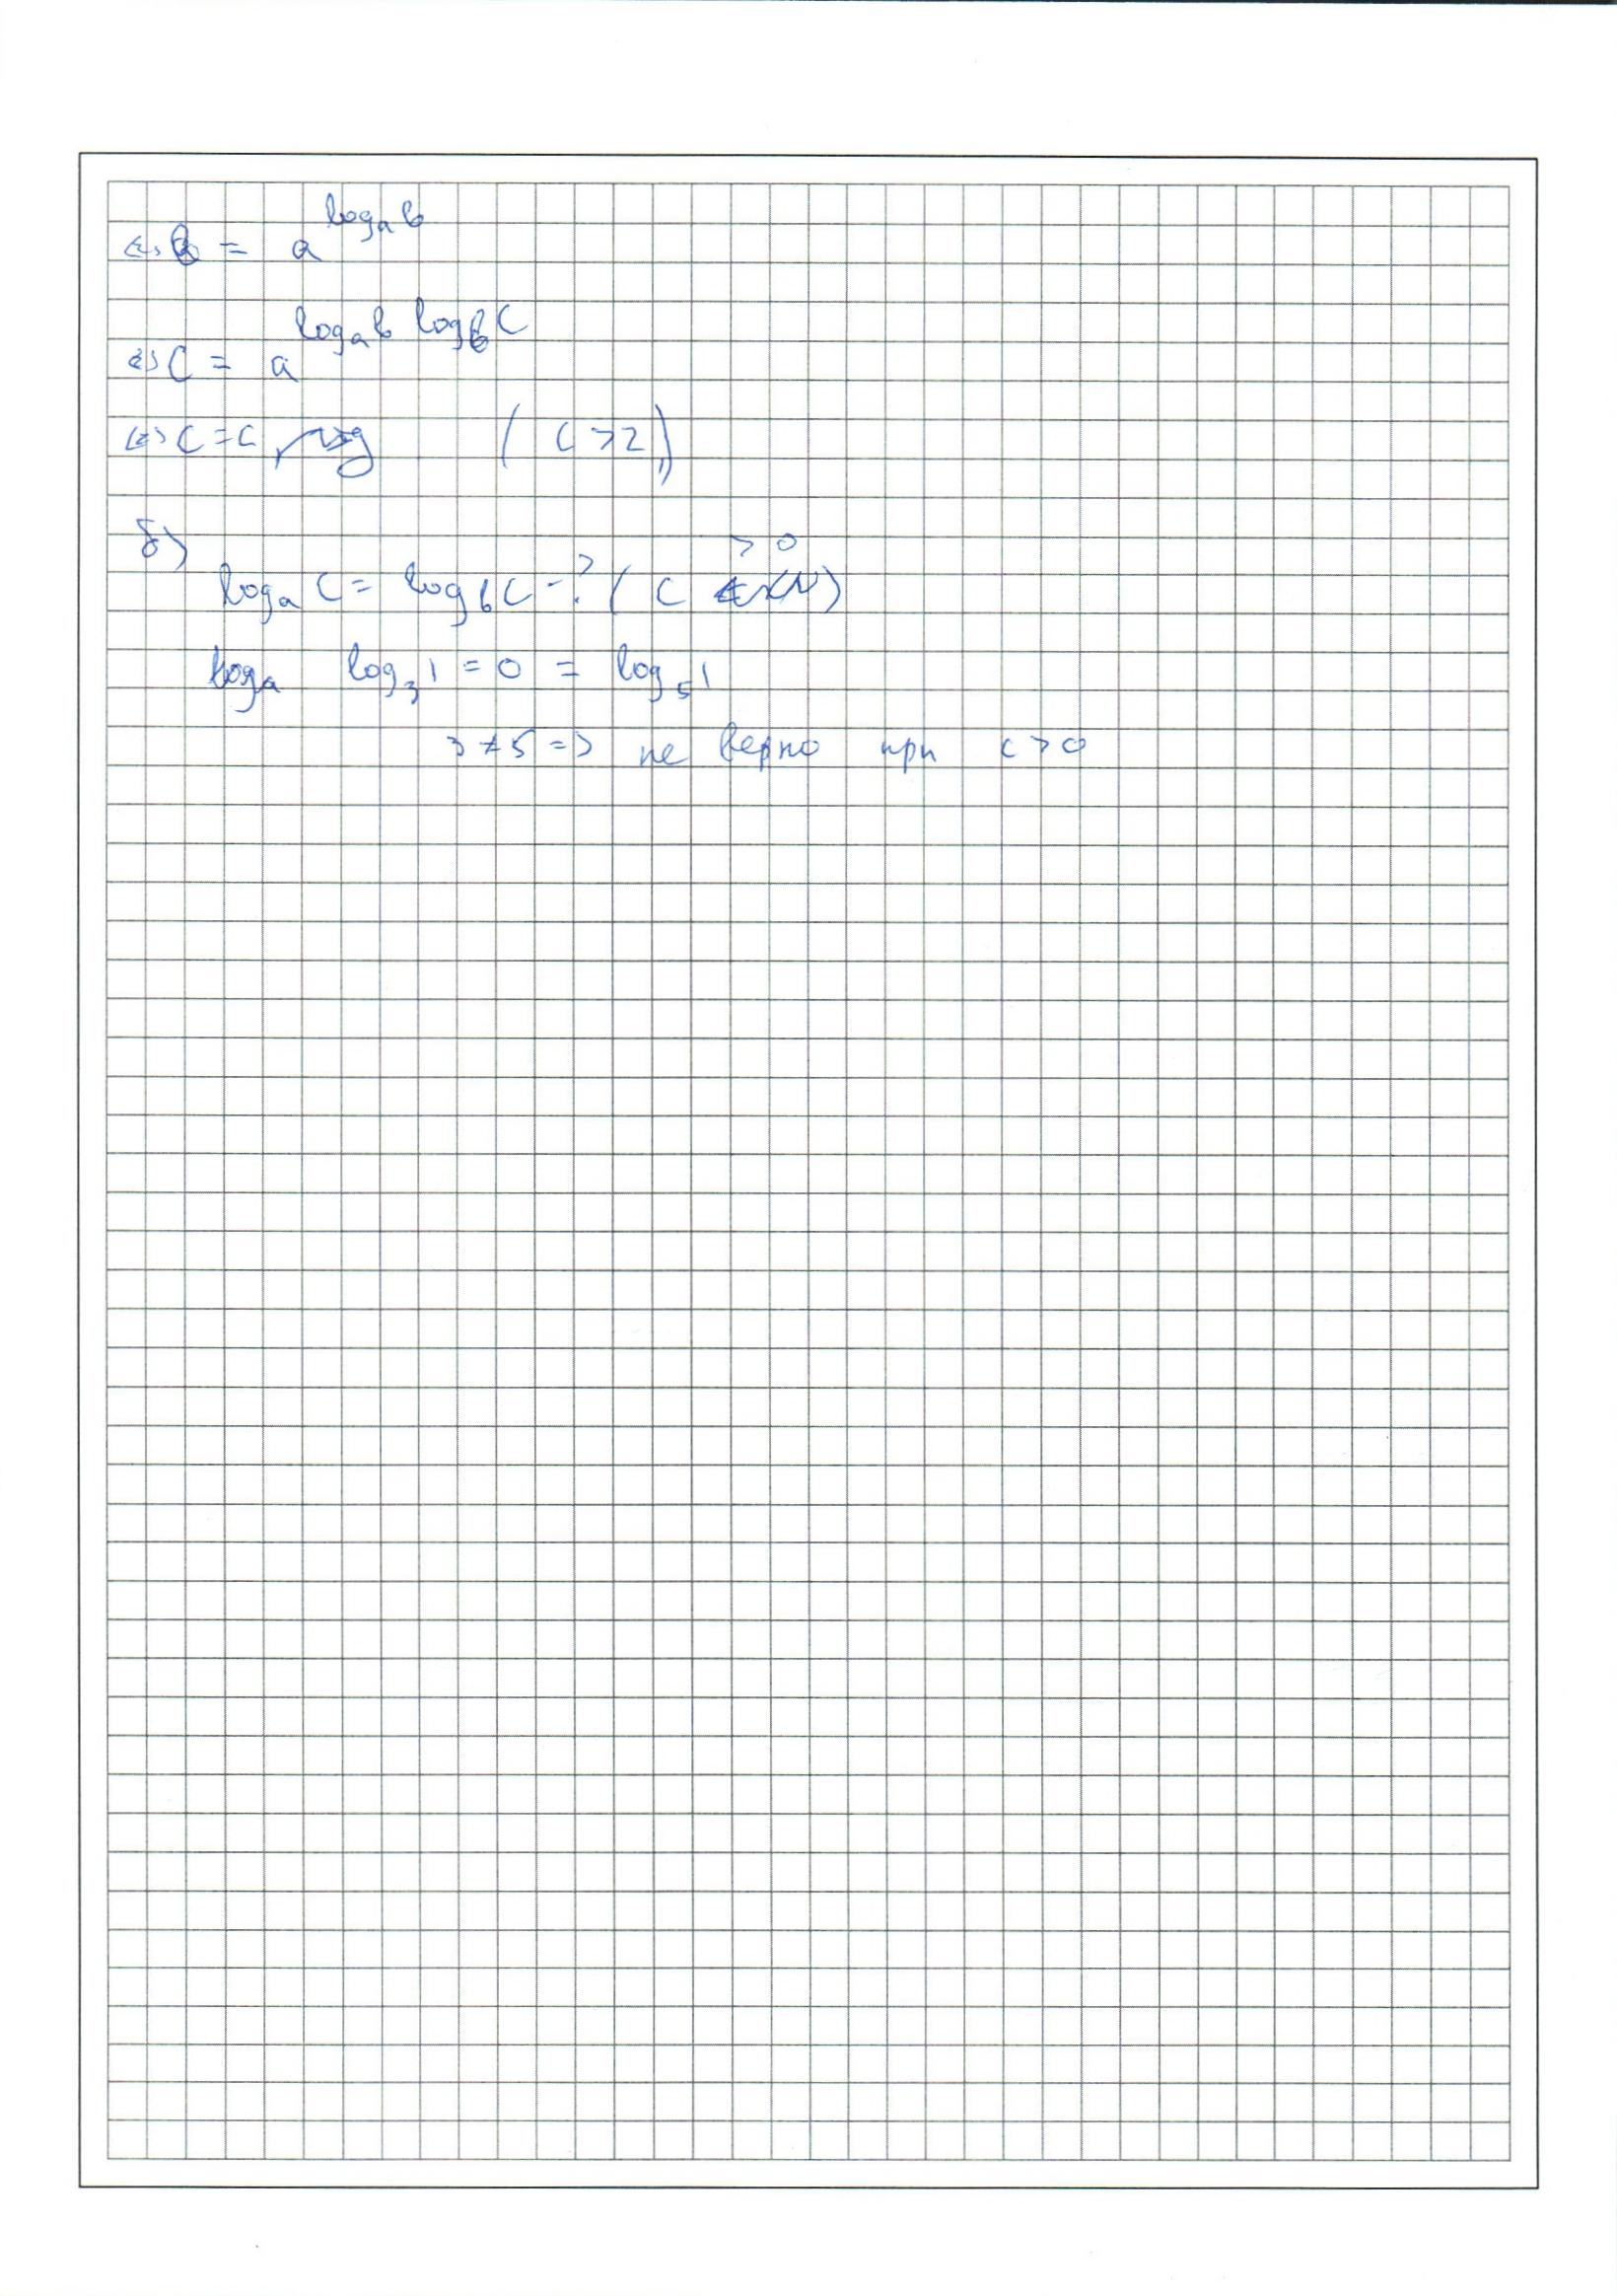 <=> b = a^{log_a b}
<=> C = a^{log_a b log_b C}
<=> C = C, (C > 2)
б)
log_a C = log_b C - ? (C > 0)
log_3 1 = 0 = log_5 1
3 ≠ 5 => не верно при c > 0